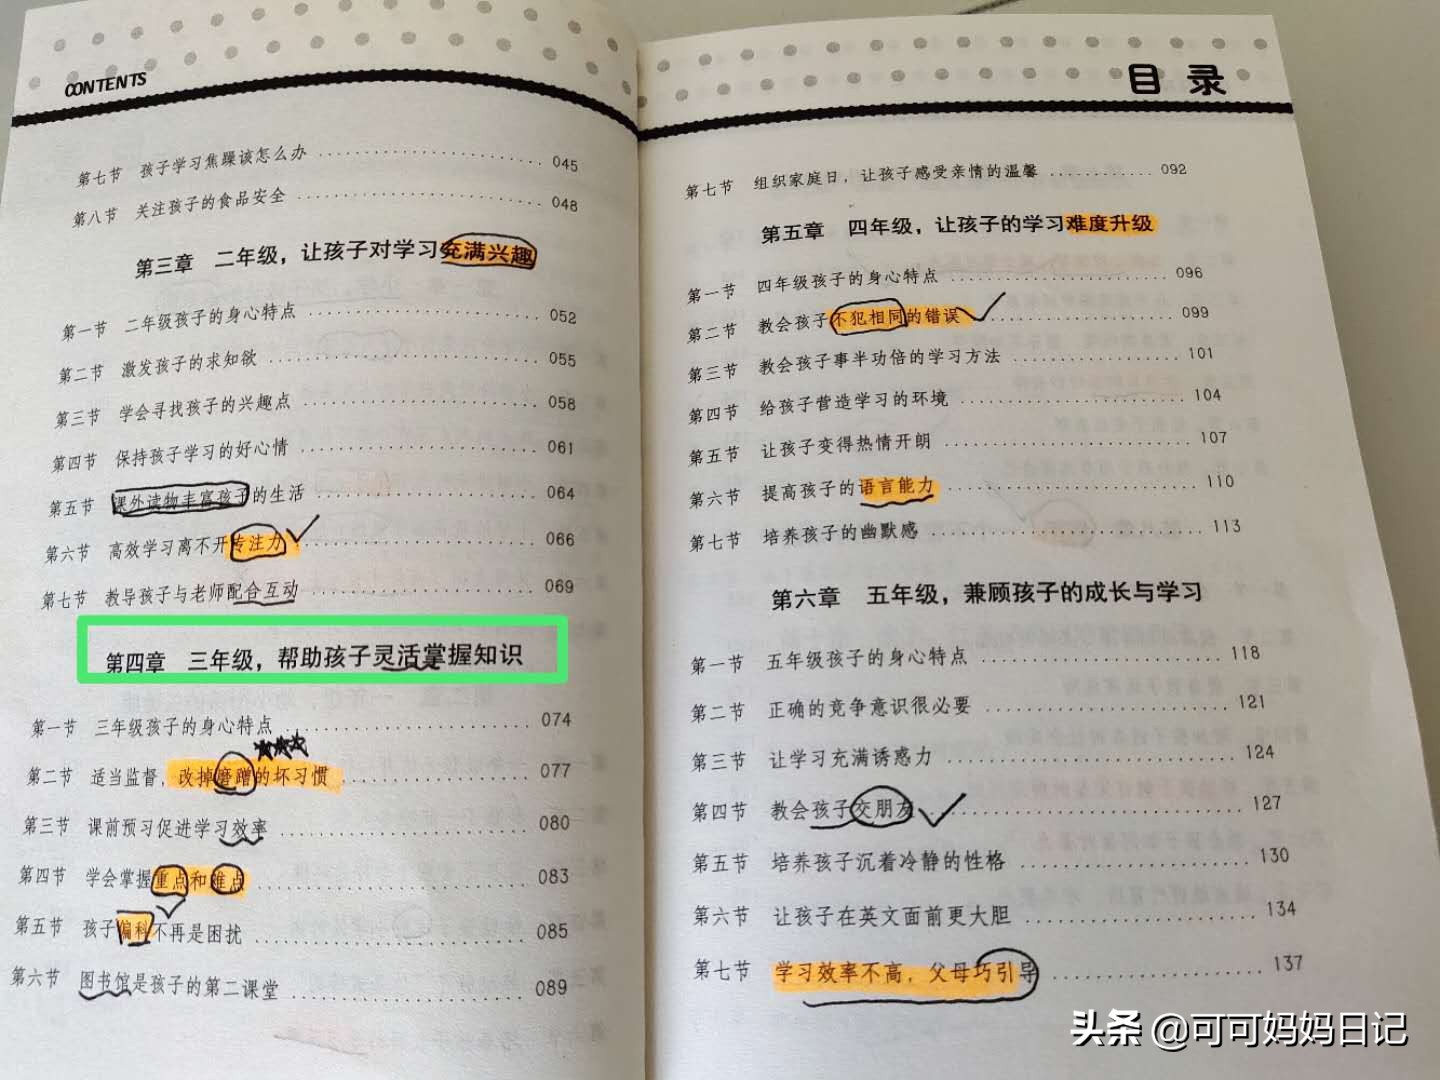 CONTENTS
第七节 孩子学习焦躁该怎么办 045
第八节 关注孩子的食品安全 048
第三章 二年级，让孩子对学习充满兴趣
第一节 二年级孩子的身心特点 052
第二节 激发孩子的求知欲 055
第三节 学会寻找孩子的兴趣点 058
第四节 保持孩子学习的好心情 061
第五节 课外读物丰富孩子的生活 064
第六节 高效学习离不开专注力 066
第七节 教导孩子与老师配合互动 069
第四章 三年级，帮助孩子灵活掌握知识
第一节 三年级孩子的身心特点 074
第二节 适当监督，改掉磨蹭的坏习惯 077
第三节 课前预习促进学习效率 080
第四节 学会掌握重点和难点 083
第五节 孩子偏科不再是困扰 085
第六节 图书馆是孩子的第二课堂 089
目录
第七节 组织家庭日，让孩子感受亲情的温馨 092
第五章 四年级，让孩子的学习难度升级
第一节 四年级孩子的身心特点 096
第二节 教会孩子不犯相同的错误 099
第三节 教会孩子事半功倍的学习方法 101
第四节 给孩子营造学习的环境 104
第五节 让孩子变得热情开朗 107
第六节 提高孩子的语言能力 110
第七节 培养孩子的幽默感 113
第六章 五年级，兼顾孩子的成长与学习
第一节 五年级孩子的身心特点 118
第二节 正确的竞争意识很必要 121
第三节 让学习充满诱惑力 124
第四节 教会孩子交朋友 127
第五节 培养孩子沉着冷静的性格 130
第六节 让孩子在英文面前更大胆 134
第七节 学习效率不高，父母巧引导 137
头条 @可可妈妈日记